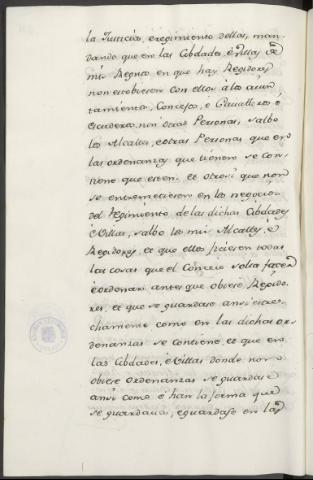 la Justicia, e regimiento dellas, man-
dando que en las Cibdades e Villas de
mis Regnos en que hay Regidores
non estobiesen con ellos á lo aiun-
tamiento, Concejo, e Cavalleros e
Escuderos, nin otras Personas, salbo
los Alcalles, e otras Personas que en
las ordenanzas que tienen se con-
tiene que esten. et otrosi que non
se entremetiesen en los negocios
del Regimiento de las dichas Cibdades
e Villas, salbo los mis Alcalles, e
Regidores, et que ellos ficiesen todas
las cosas que el Concejo solia facer
e ordenar antes que obiese Regido-
res, et que se guardase ansi estre-
chamente como en las dichas or-
denanzas se contiene, et que en
las Cibdades, e Villas donde non
obiese ordenanzas se guardase
ansi como e han la forma que
se guardaba, e guardase en las